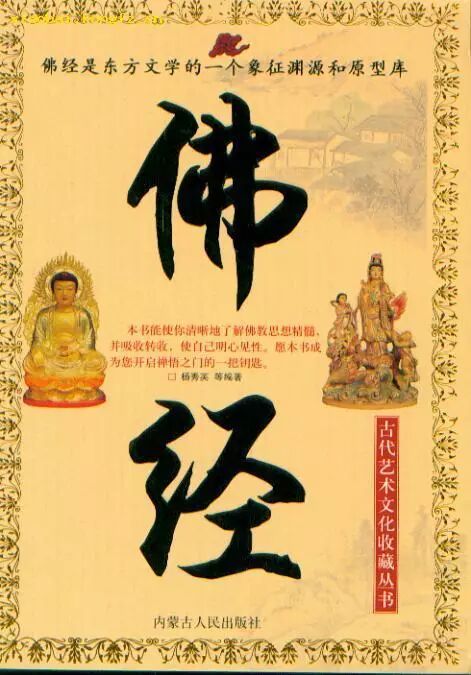 佛经是东方文学的一个象征渊源和原型库
佛
经
本书能使你清晰地了解佛教思想精髓，
并吸收转收，使自己明心见性。愿本书成
为您开启禅悟之门的一把钥匙。
□ 杨秀英 等编著
古代艺术文化收藏丛书
内蒙古人民出版社